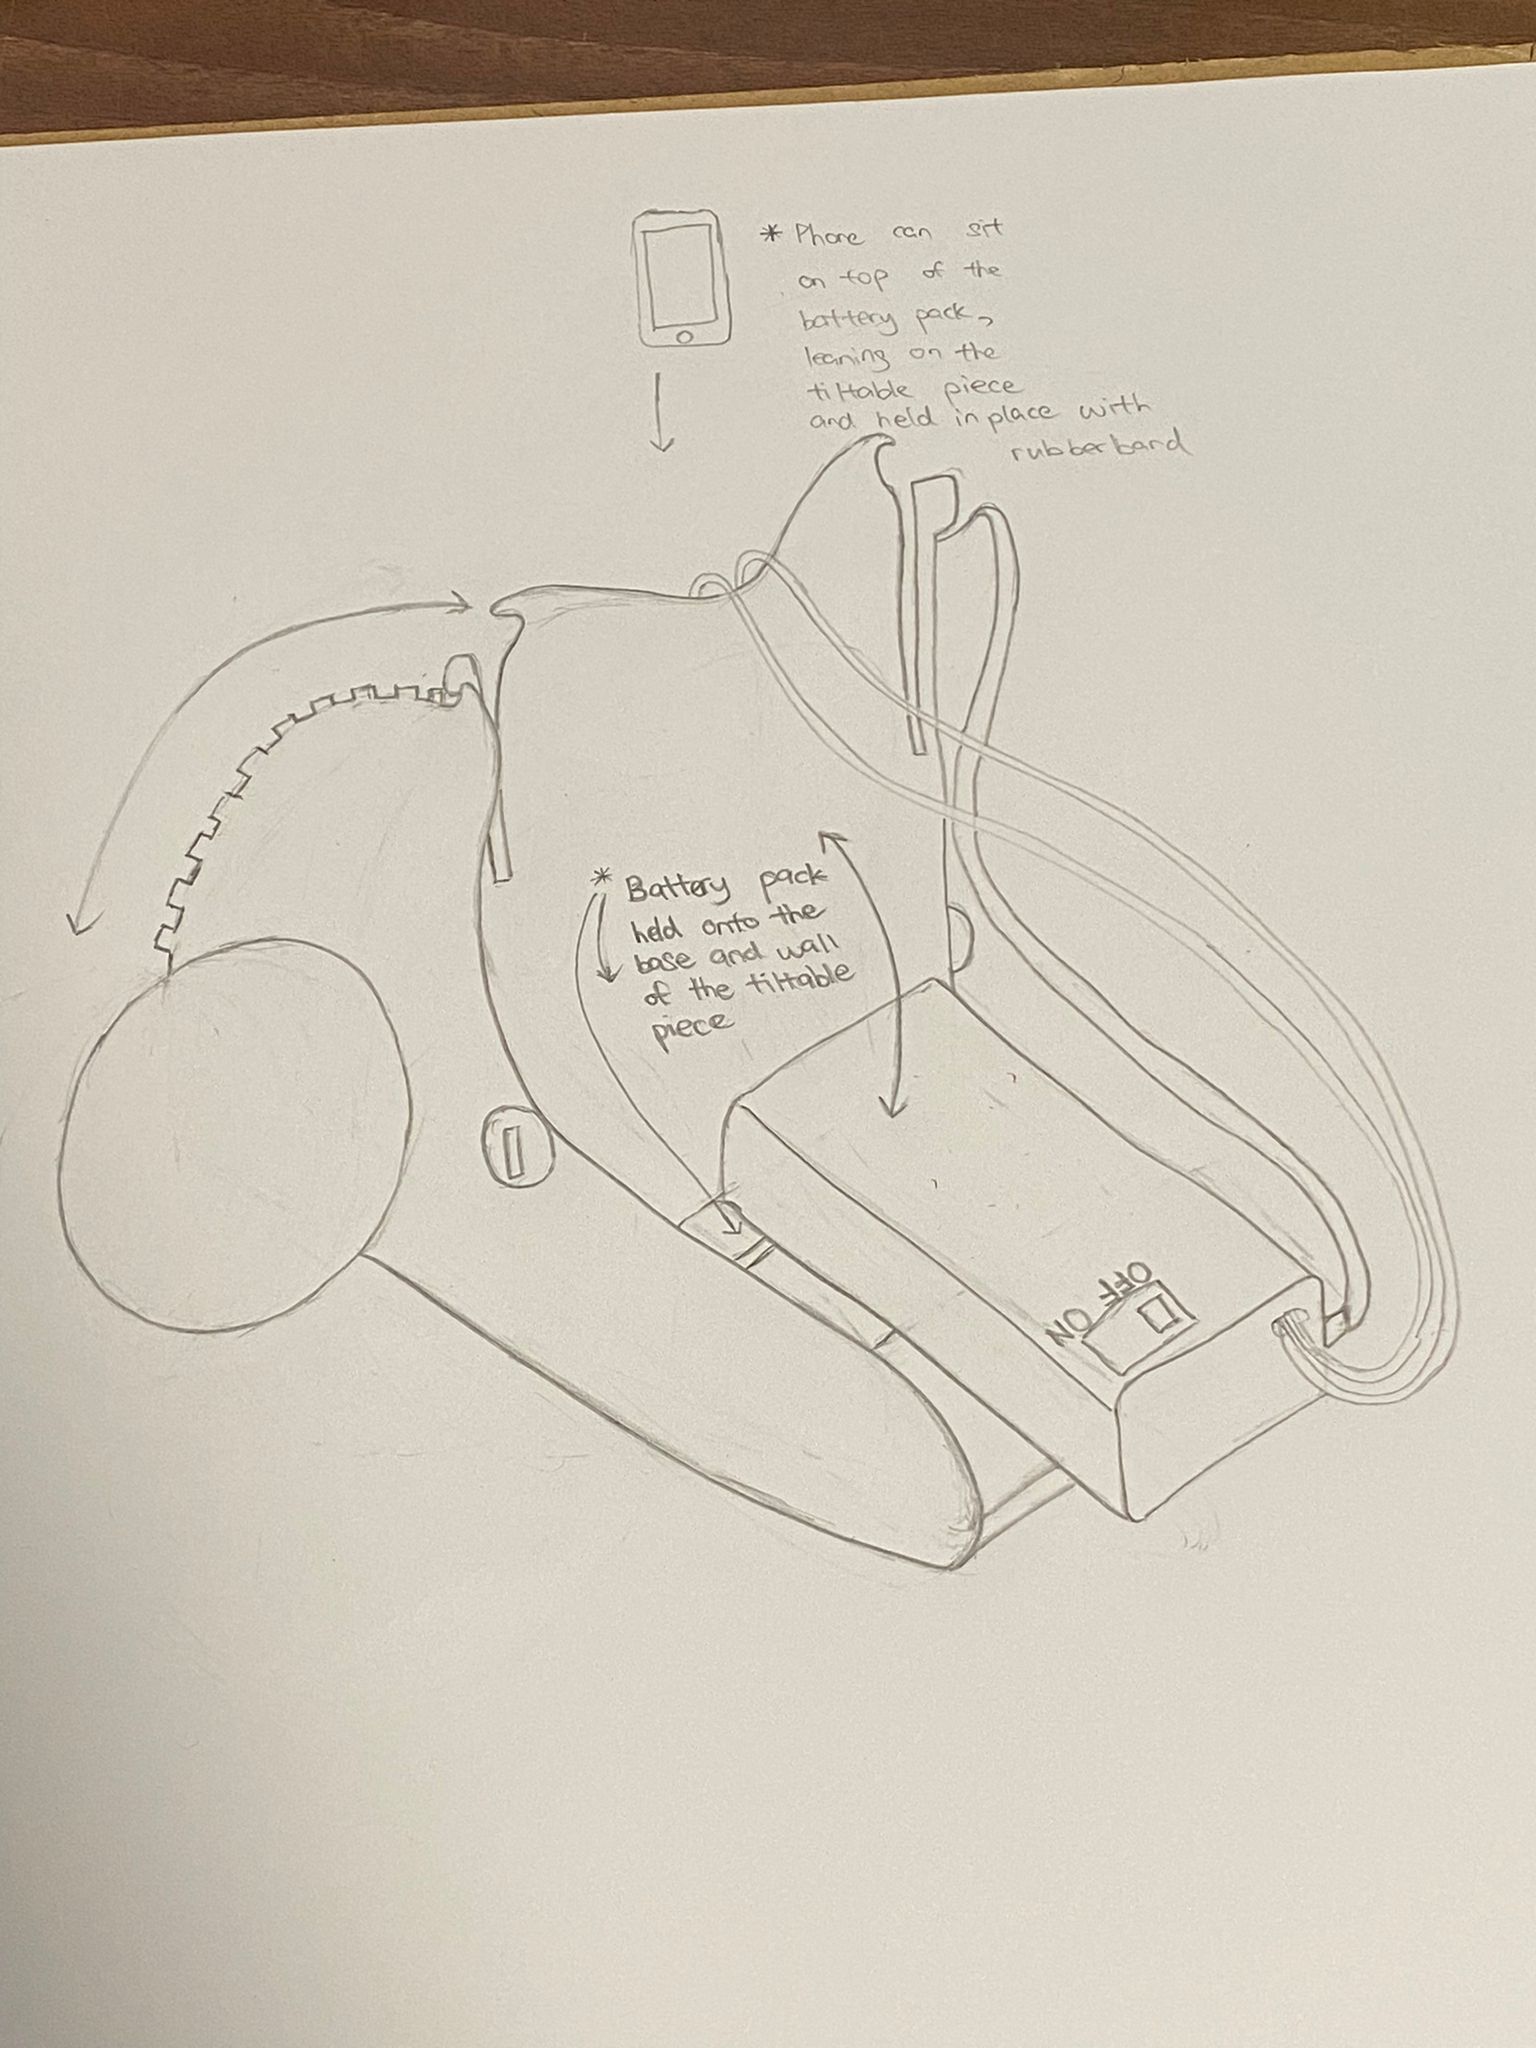 * Phone can sit
on top of the
battery pack,
leaning on the
tiltable piece
and held in place with
rubberband
* Battery pack
held onto the
base and wall
of the tiltable
piece
OFF
ON